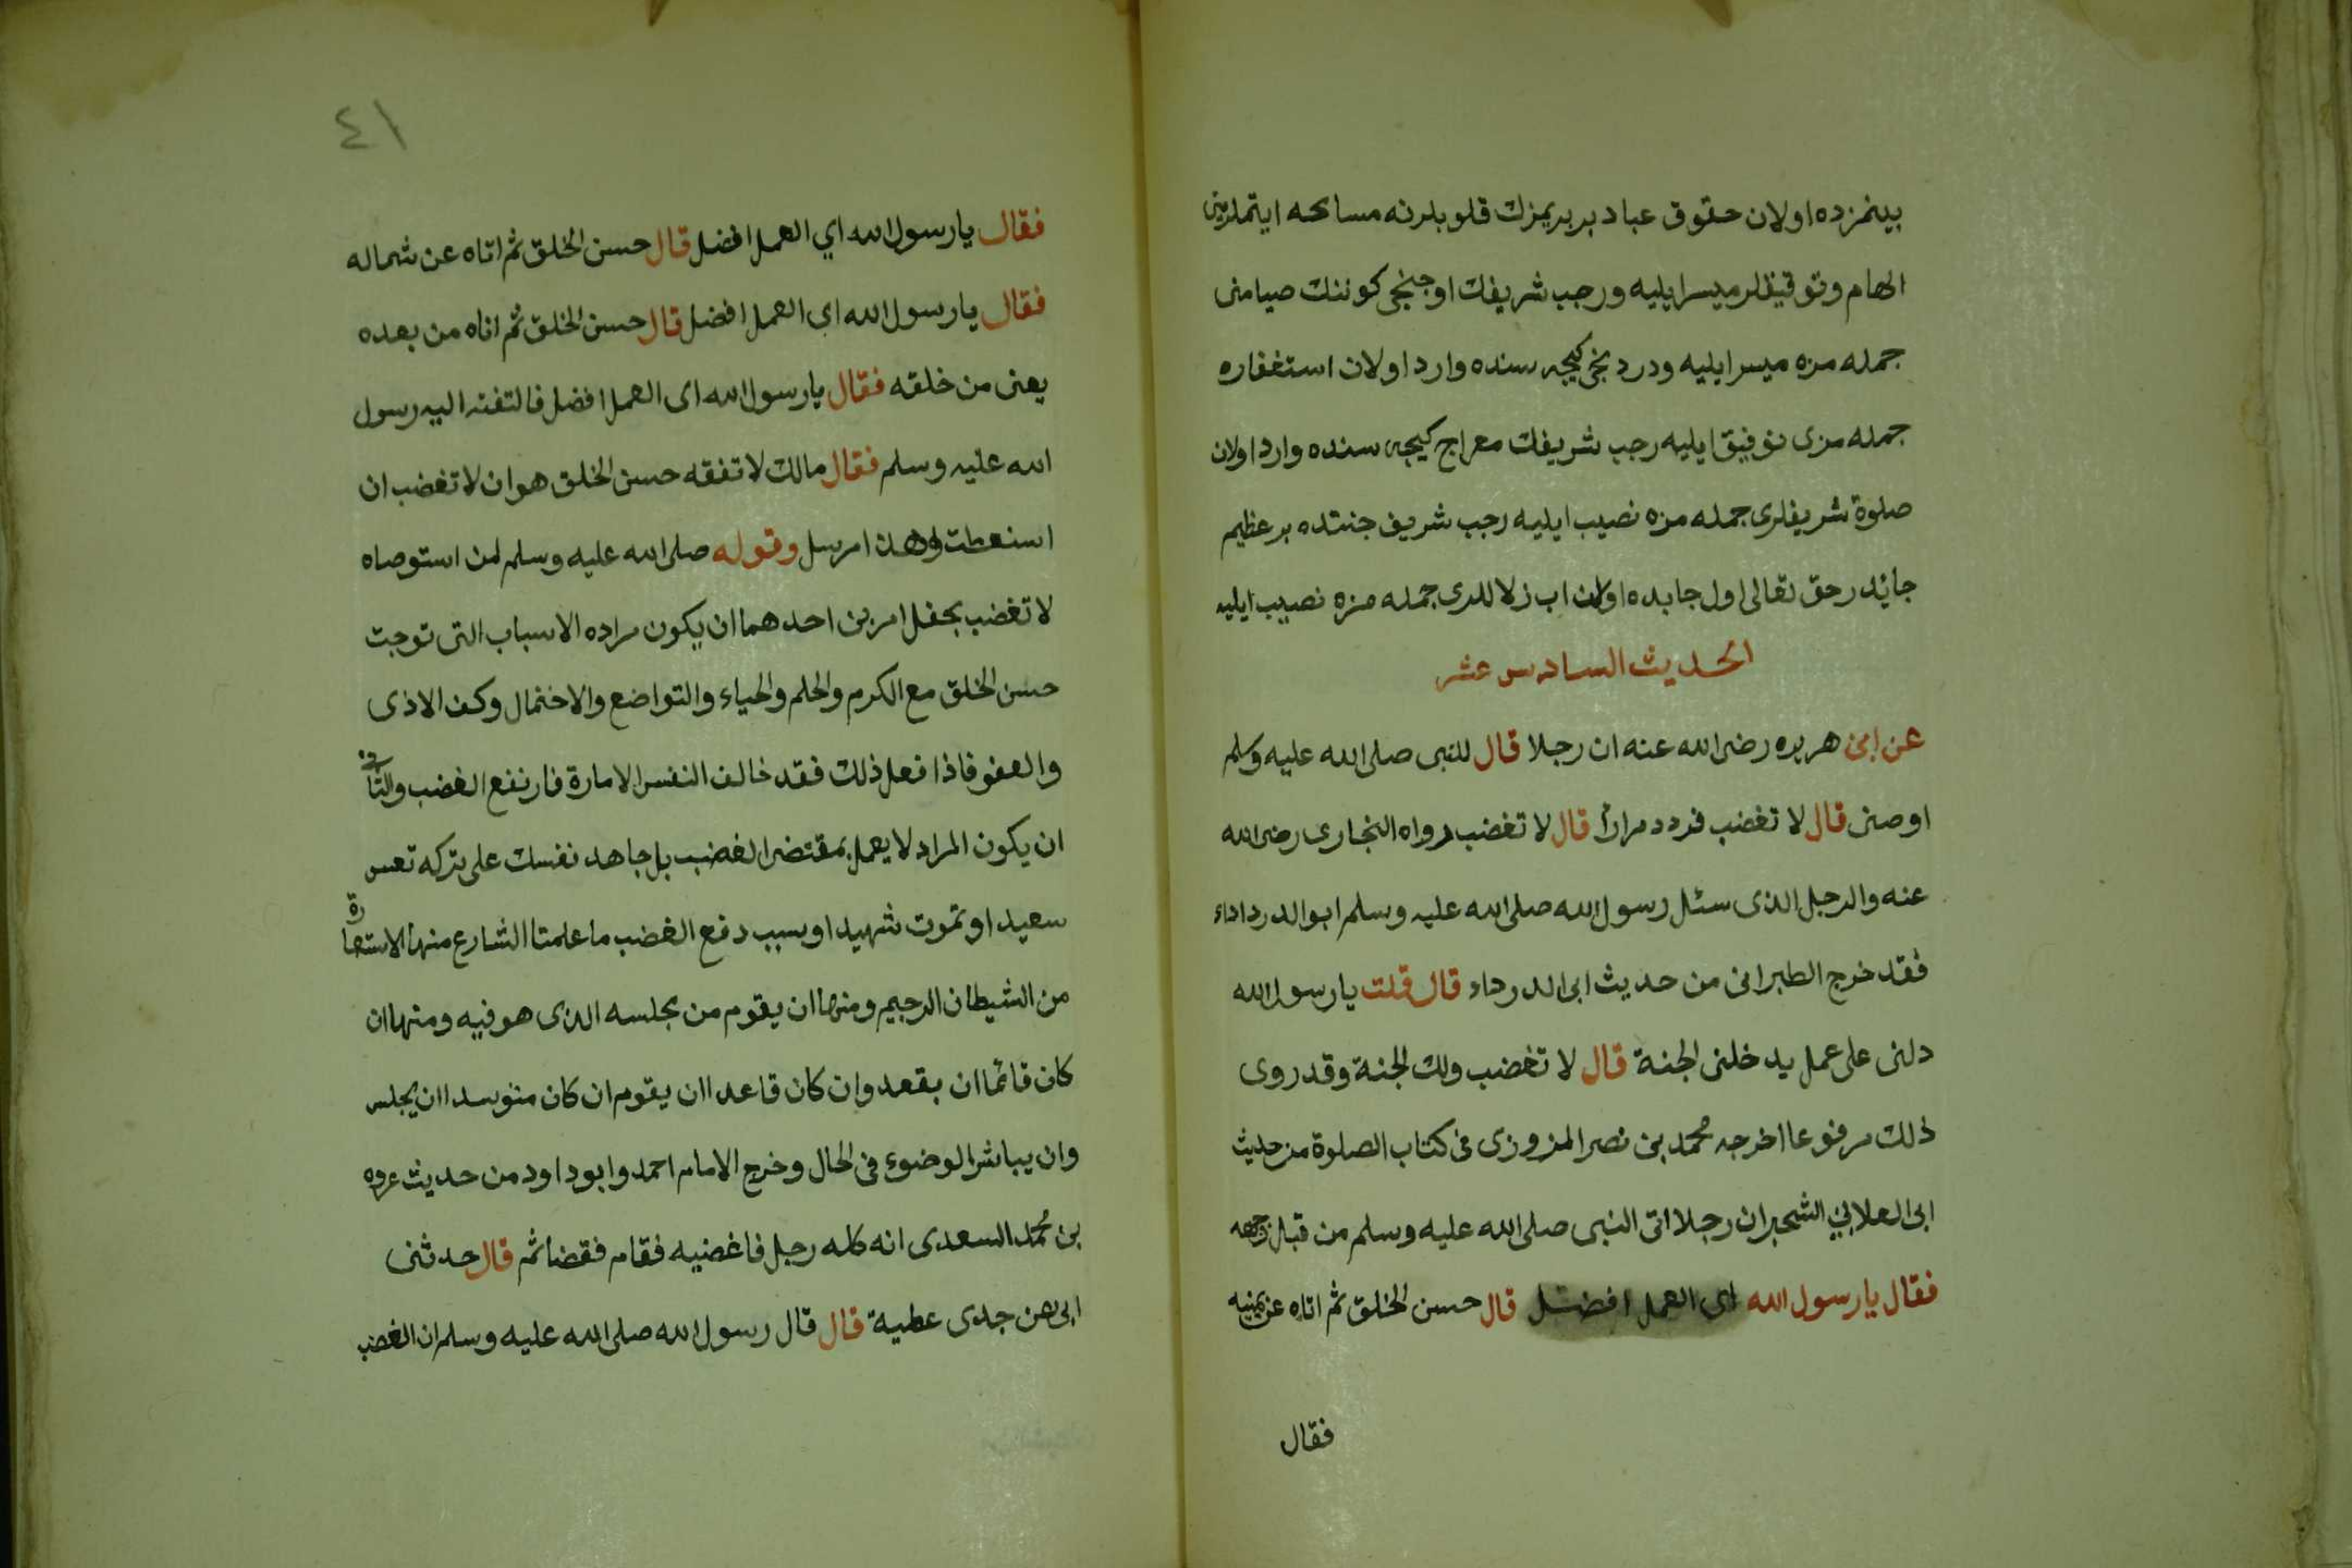 بينمزده اولان حقوق عباد بر بريمزك قلوبلرنه مسامحه ايتملرين
الهام وتوفيقلر ميسر ايليه ورجب شريفك اوجنجى كوننك صيامنى
جمله مزه ميسر ايليه ودردنجى كيجه سنده وارد اولان استغفاره
جمله مزى توفيق ايليه رجب شريفك معراج كيجه سنده وارد اولان
صلوة شريفلرى جمله مزه نصيب ايليه رجب شريف جنتده بر عظيم
جايدر حق تعالى اول جايده اولان اب زلاللرى جمله مزه نصيب ايليه
الحديث السادس عشر
عن ابى هريره رضى الله عنه ان رجلا قال للنبى صلى الله عليه وسلم
اوصنى قال لا تغضب فردد مرارا قال لا تغضب رواه البخارى رضى الله
عنه والرجل الذى سئل رسول الله صلى الله عليه وسلم ابو الدرداء
فقد خرج الطبرانى من حديث ابى الدرداء قال قلت يا رسول الله
دلنى على عمل يدخلنى الجنة قال لا تغضب ولك الجنة وقد روى
ذلك مرفوعا اخرجه محمد بن نصر المزوزى فى كتاب الصلوة من حديث
ابى العلا بن الشحير ان رجلا اتى النبى صلى الله عليه وسلم من قبل وجهه
فقال يا رسول الله اى العمل افضل قال حسن الخلق ثم اتاه عن يمينه
فقال
٤١
فقال يا رسول الله اي العمل افضل قال حسن الخلق ثم اتاه عن شماله
فقال يا رسول الله اى العمل افضل قال حسن الخلق ثم اتاه من بعده
يعنى من خلفه فقال يا رسول الله اى العمل افضل فالتفت اليه رسول
الله عليه وسلم فقال مالك لا تفقه حسن الخلق هو ان لا تغضب ان
استعطت وهذا مرسل وقوله صلى الله عليه وسلم لمن استوصاه
لا تغضب يحفل امرين احدهما ان يكون مراده الاسباب التى توجب
حسن الخلق مع الكرم والحلم والحياء والتواضع والاحتمال وكف الاذى
والعفو فاذا فعل ذلك فقد خالف النفس الامارة فارتفع الغضب والثانى
ان يكون المراد لا يعمل بمقتضى الغضب بل جاهد نفسك على تركه تعس
سعيد او تموت شهيد او سبب دفع الغضب ما علمنا الشارع منها الاستعارة
من الشيطان الرجيم ومنها ان يقوم من مجلسه الذى هو فيه ومنها ان
كان قائما ان يقعد وان كان قاعدا ان يقوم ان كان متوسدا ان يجلس
وان يباشر الوضوء فى الحال وخرج الامام احمد وابو داود من حديث عروه
بن محمد السعدى انه كلمه رجل فاغضبه فقام فتوضا ثم قال حدثنى
ابى عن جدى عطية قال قال رسول الله صلى الله عليه وسلم ان الغضب